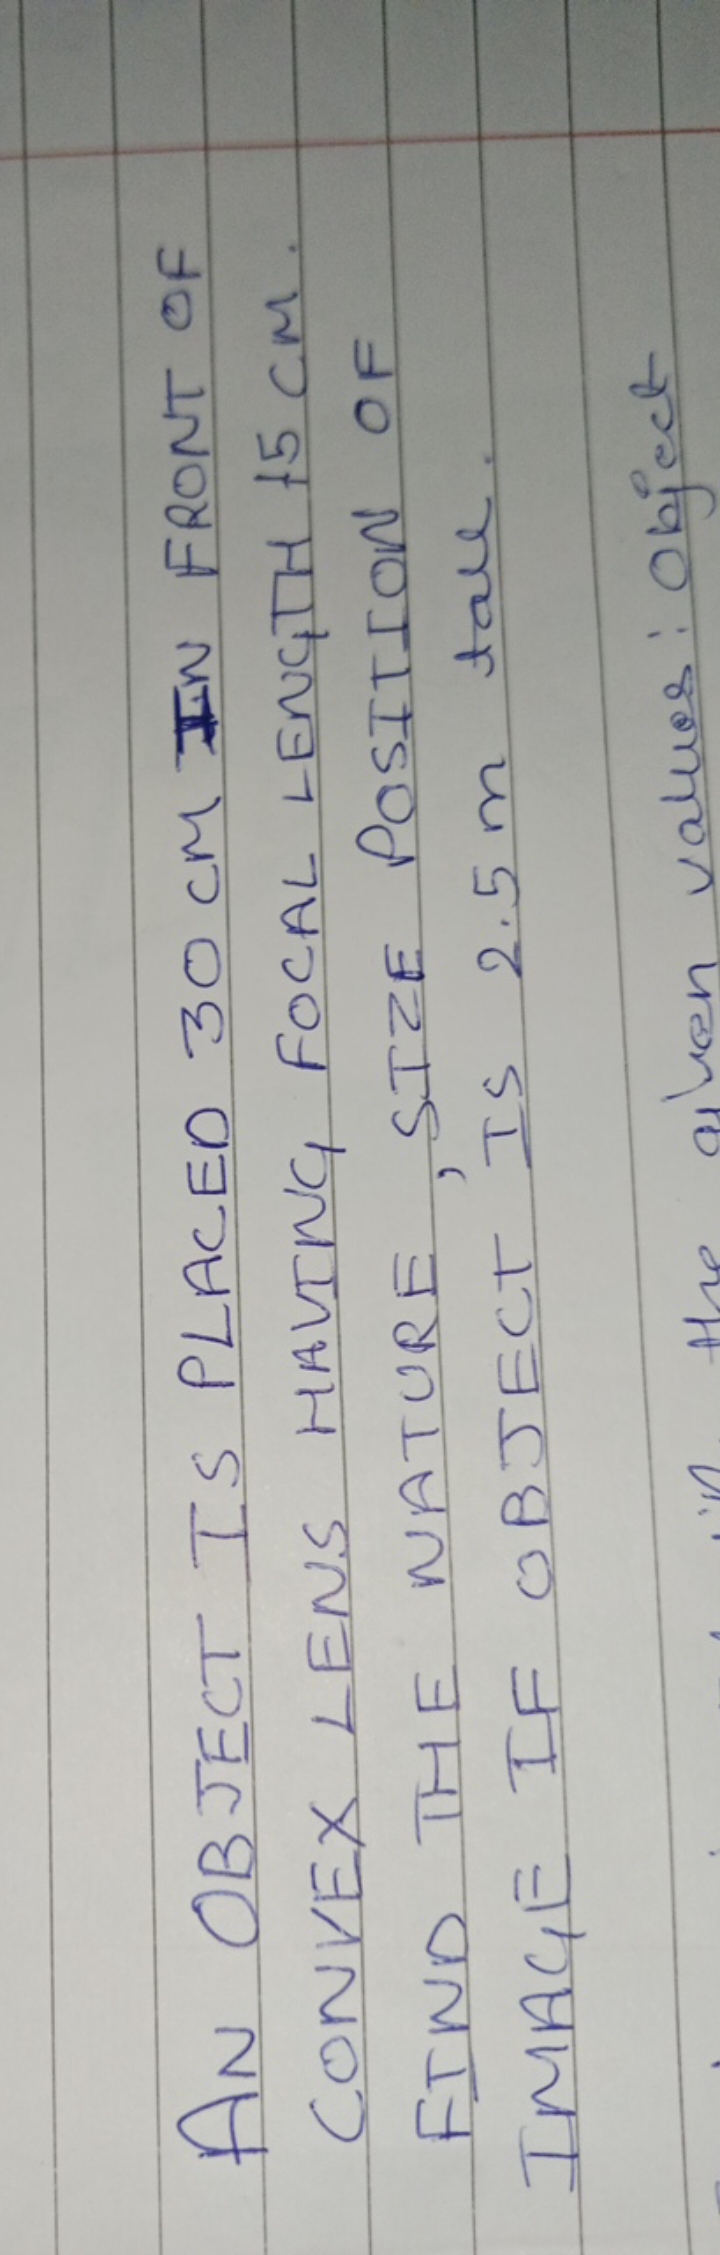 AN OBJECT IS PLACED 30 CM IN FRONT OF
CONVEX LENS HAVING FOCAL LENGTH 15 CM.
FIND THE NATURE, SIZE POSITION OF
IMAGE IF OBJECT IS 2.5 m tall.
the given values: Object